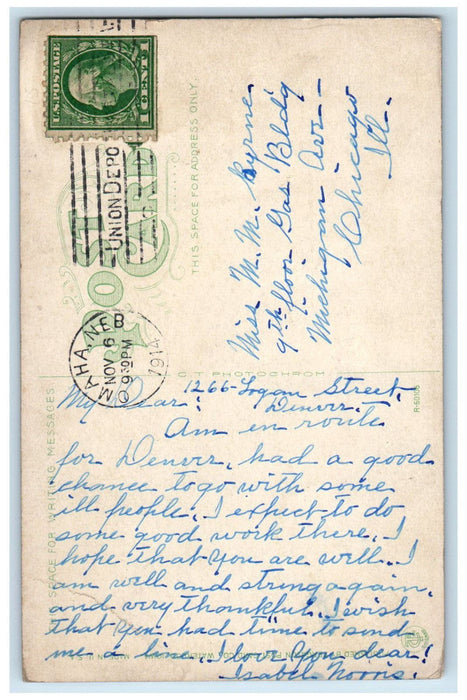 U.S. POSTAGE
1 CENT 1
UNION DEPO
POST CARD
THIS SPACE FOR ADDRESS ONLY
Miss M. M. Byrne
9th floor Gas Bldg
Michigan Ave -
Chicago
Ill.
MAHA, NEB
NOV 6
930PM
1914
PHOTOCHROM
R-50105
SPACE FOR WRITING MESSAGES
1266- Logan Street.
My Dear: Denver.
Am en route
for Denver, had a good
chance to go with some
ill people. I expect to do
some good work there. I
hope that you are well. I
am well and strong again,
and very thankful. I wish
that you had time to send
me a line. Love you dear!
Isabel Norris.